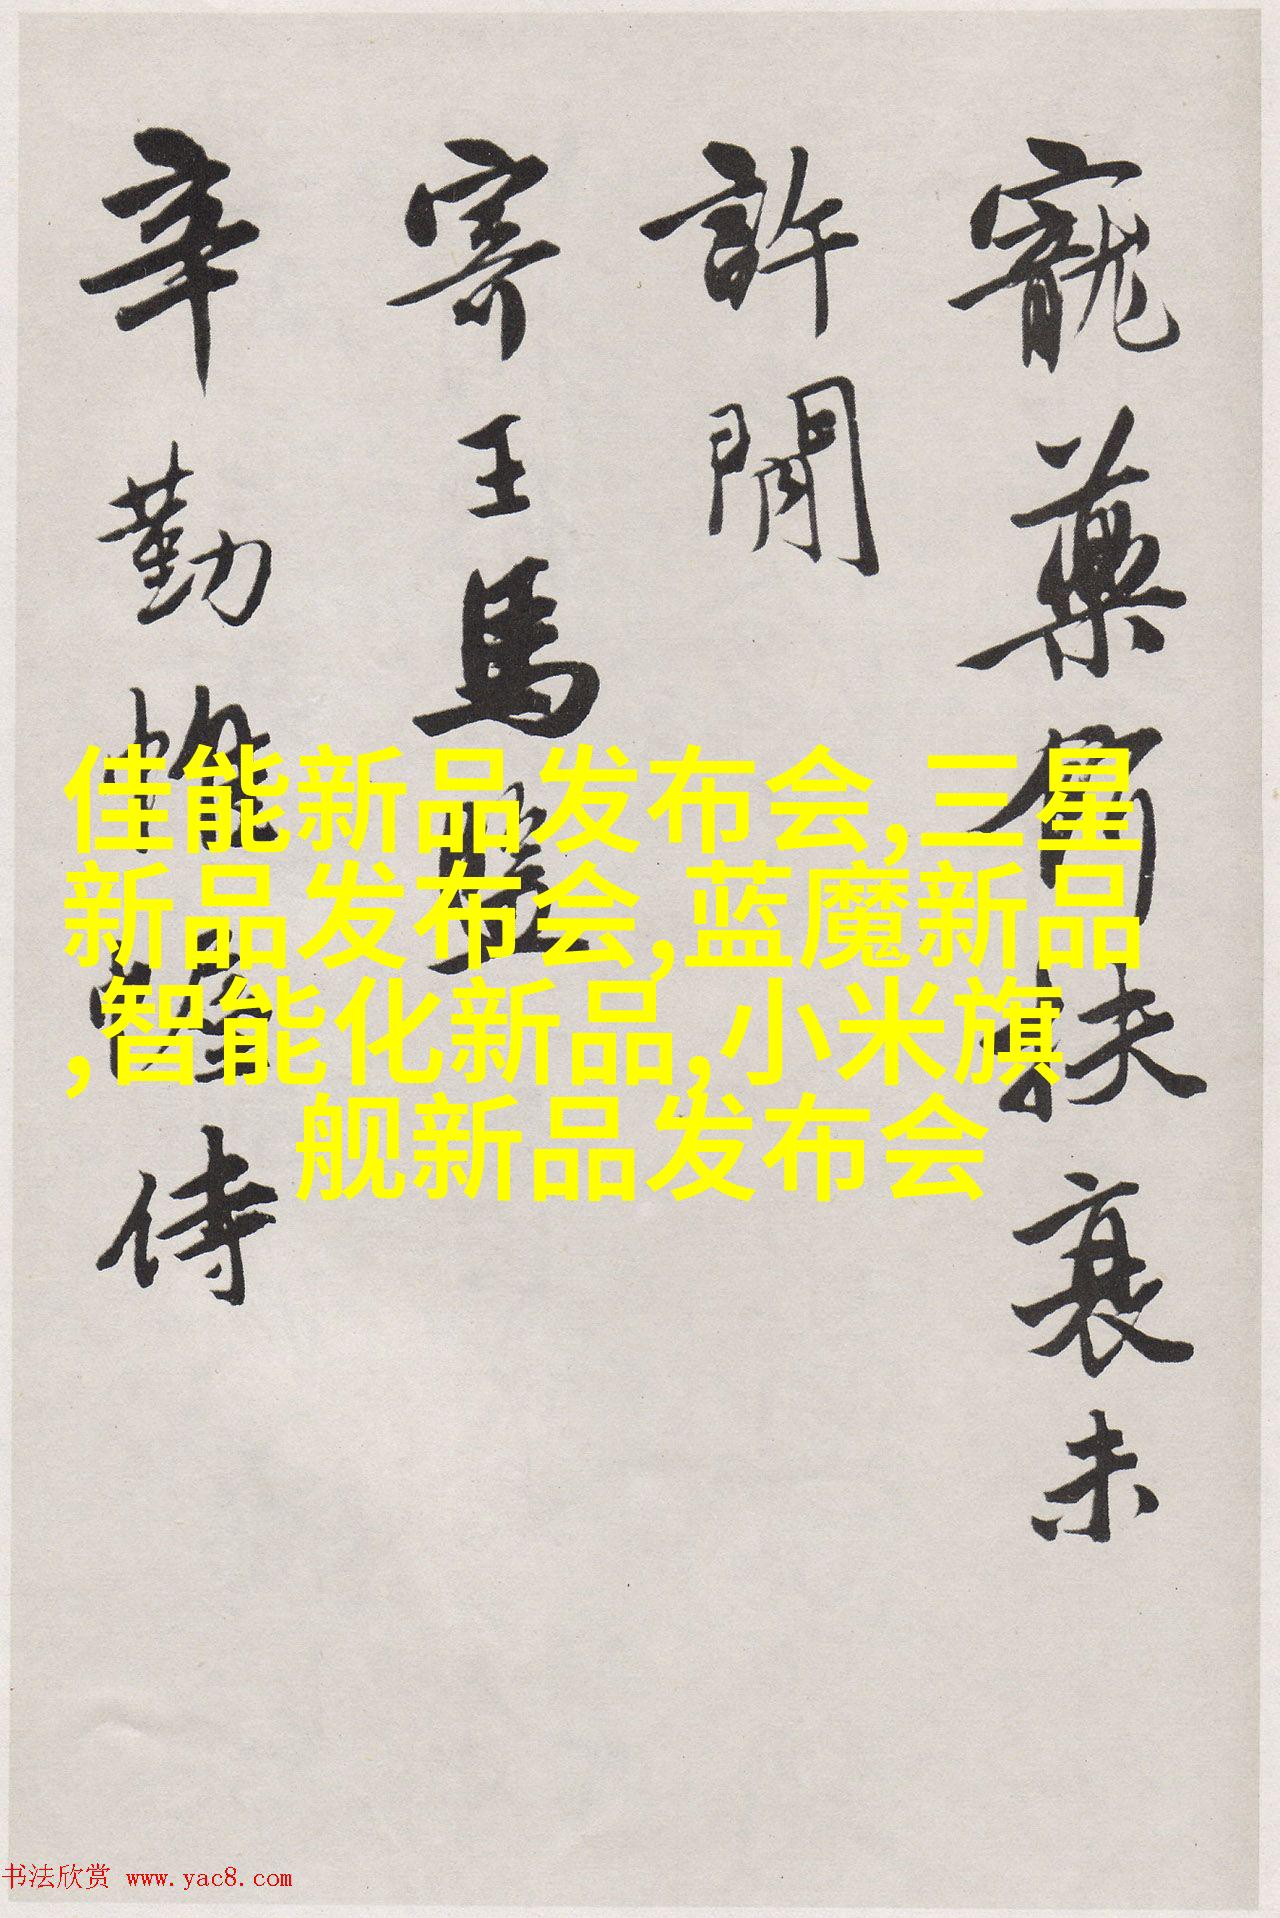 寵藥有扶衰未
許閒
寄王馬
辛勤帷幄侍
佳能新品发布会,三星
新品发布会,蓝魔新品
,智能化新品,小米旗
舰新品发布会
书法欣赏 www.yac8.com